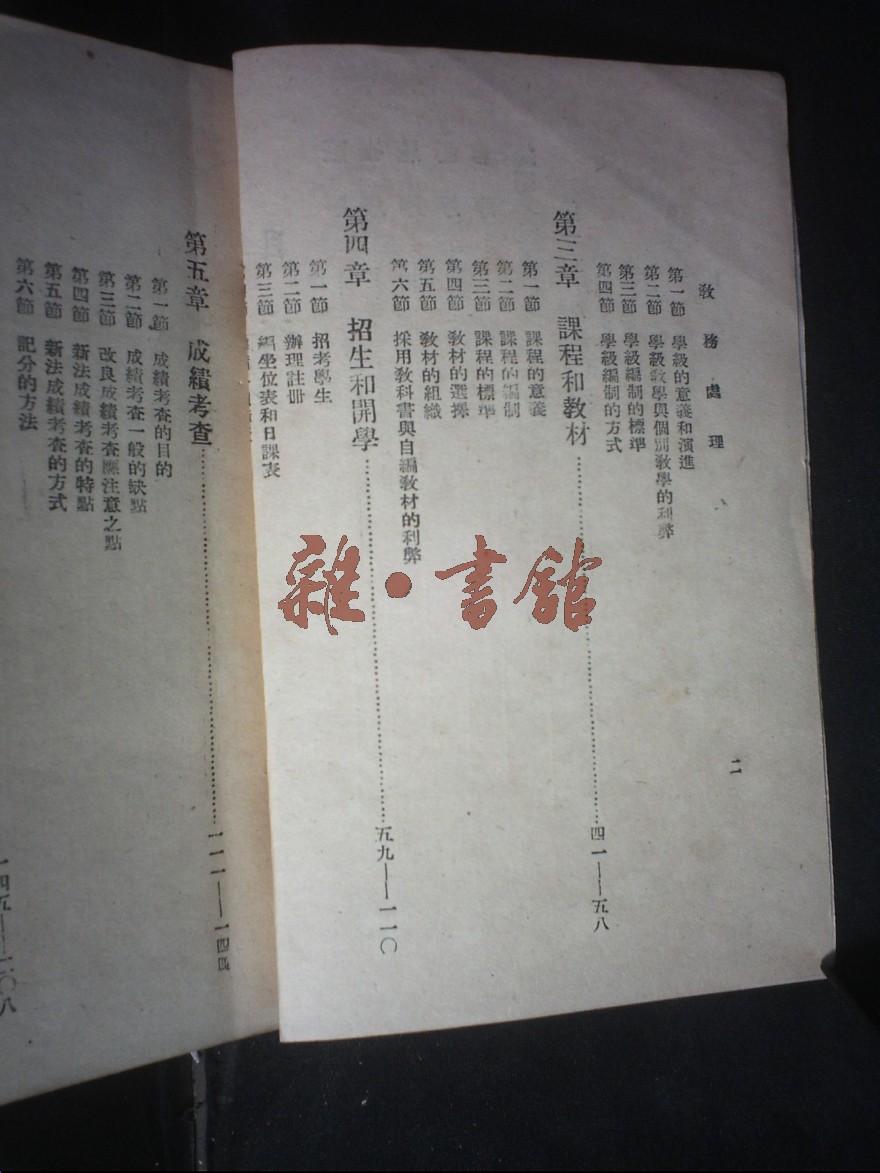 教務處理
二
第一節　學級的意義和演進
第二節　學級教學與個別教學的利弊
第三節　學級編制的標準
第四節　學級編制的方式
第三章　課程和教材……四一——五八
第一節　課程的意義
第二節　課程的編制
第三節　課程的標準
第四節　教材的選擇
第五節　教材的組織
第六節　採用教科書與自編教材的利弊
第四章　招生和開學……五九——一一〇
第一節　招考學生
第二節　辦理註冊
第三節　編坐位表和日課表
第五章　成績考查……一一一——一四四
第一節　成績考查的目的
第二節　成績考查一般的缺點
第三節　改良成績考查應注意之點
第四節　新法成績考查的特點
第五節　新法成績考查的方式
第六節　記分的方法
一四五——二〇八
雜·書館